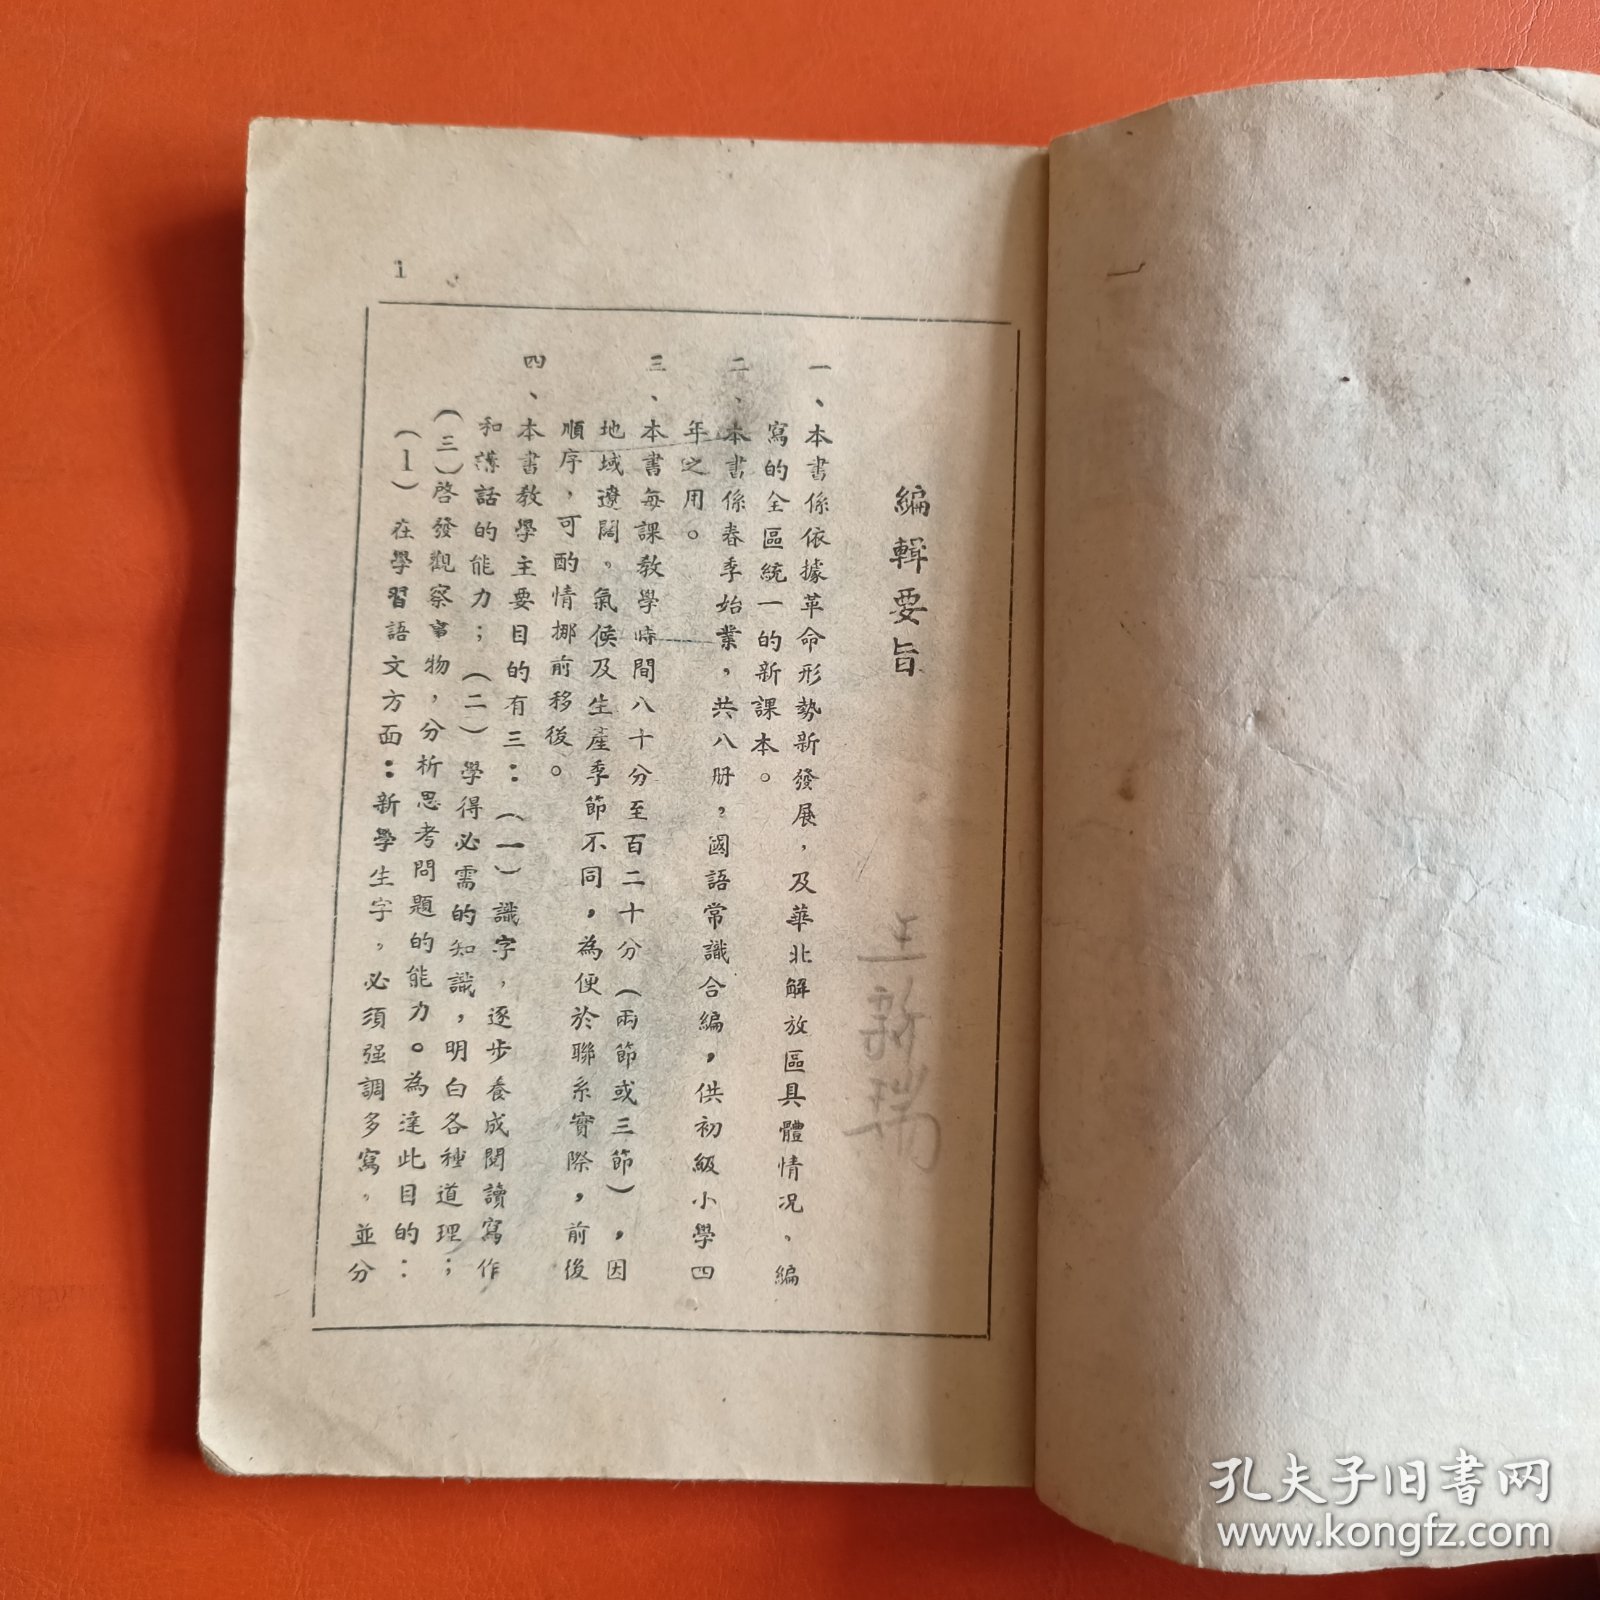 編輯要旨
一、本書係依據革命形勢新發展，及華北解放區具體情况、編
寫的全區統一的新課本。
二、本書係春季始業，共八册，國語常識合編，供初級小學四
年之用。
三、本書每課教學時間八十分至百二十分（兩節或三節），因
地域遼闊，氣候及生產季節不同，為便於聯系實際，前後
順序，可酌情挪前移後。
四、本書教學主要目的有三：（一）識字，逐步養成閱讀寫作
和講話的能力；（二）學得必需的知識，明白各種道理；
（三）啓發觀察事物，分析思考問題的能力。為達此目的：
（1）在學習語文方面：新學生字，必須强調多寫，並分
1
王新瑞
孔夫子旧书网
www.kongfz.com